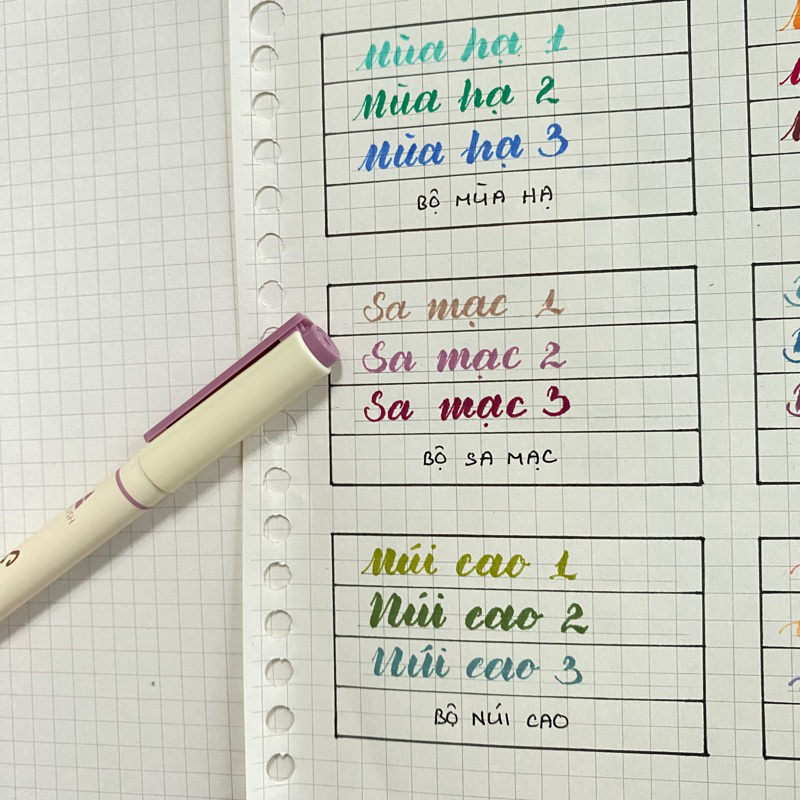 Mùa hạ 1
Mùa hạ 2
Mùa hạ 3
BỘ MÙA HẠ
Sa mạc 1
Sa mạc 2
Sa mạc 3
BỘ SA MẠC
Núi cao 1
Núi cao 2
Núi cao 3
BỘ NÚI CAO